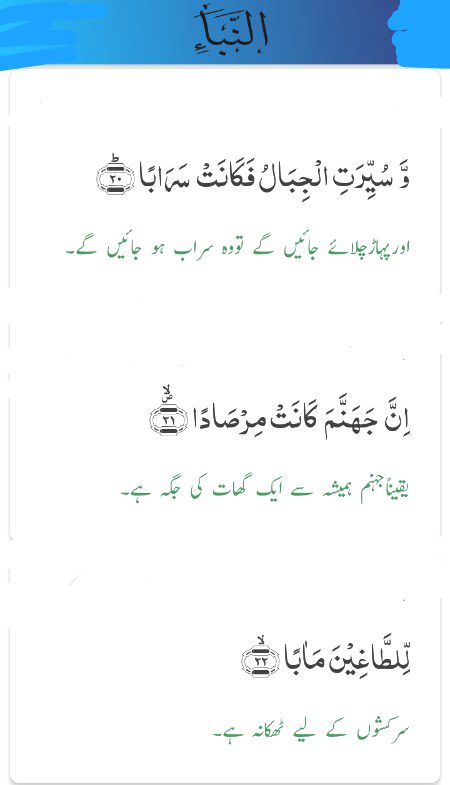 النَّبَاِ
وَّ سُيِّرَتِ الْجِبَالُ فَكَانَتْ سَرَابًا ؕ ۲۰
اور پہاڑ چلائے جائیں گے تو وہ سراب ہو جائیں گے۔
اِنَّ جَهَنَّمَ كَانَتْ مِرْصَادًا ۪ۙ ۲۱
یقیناً جہنم ہمیشہ سے ایک گھات کی جگہ ہے۔
لِّلطَّاغِيْنَ مَاٰبًا ۙ ۲۲
سرکشوں کے لیے ٹھکانہ ہے۔